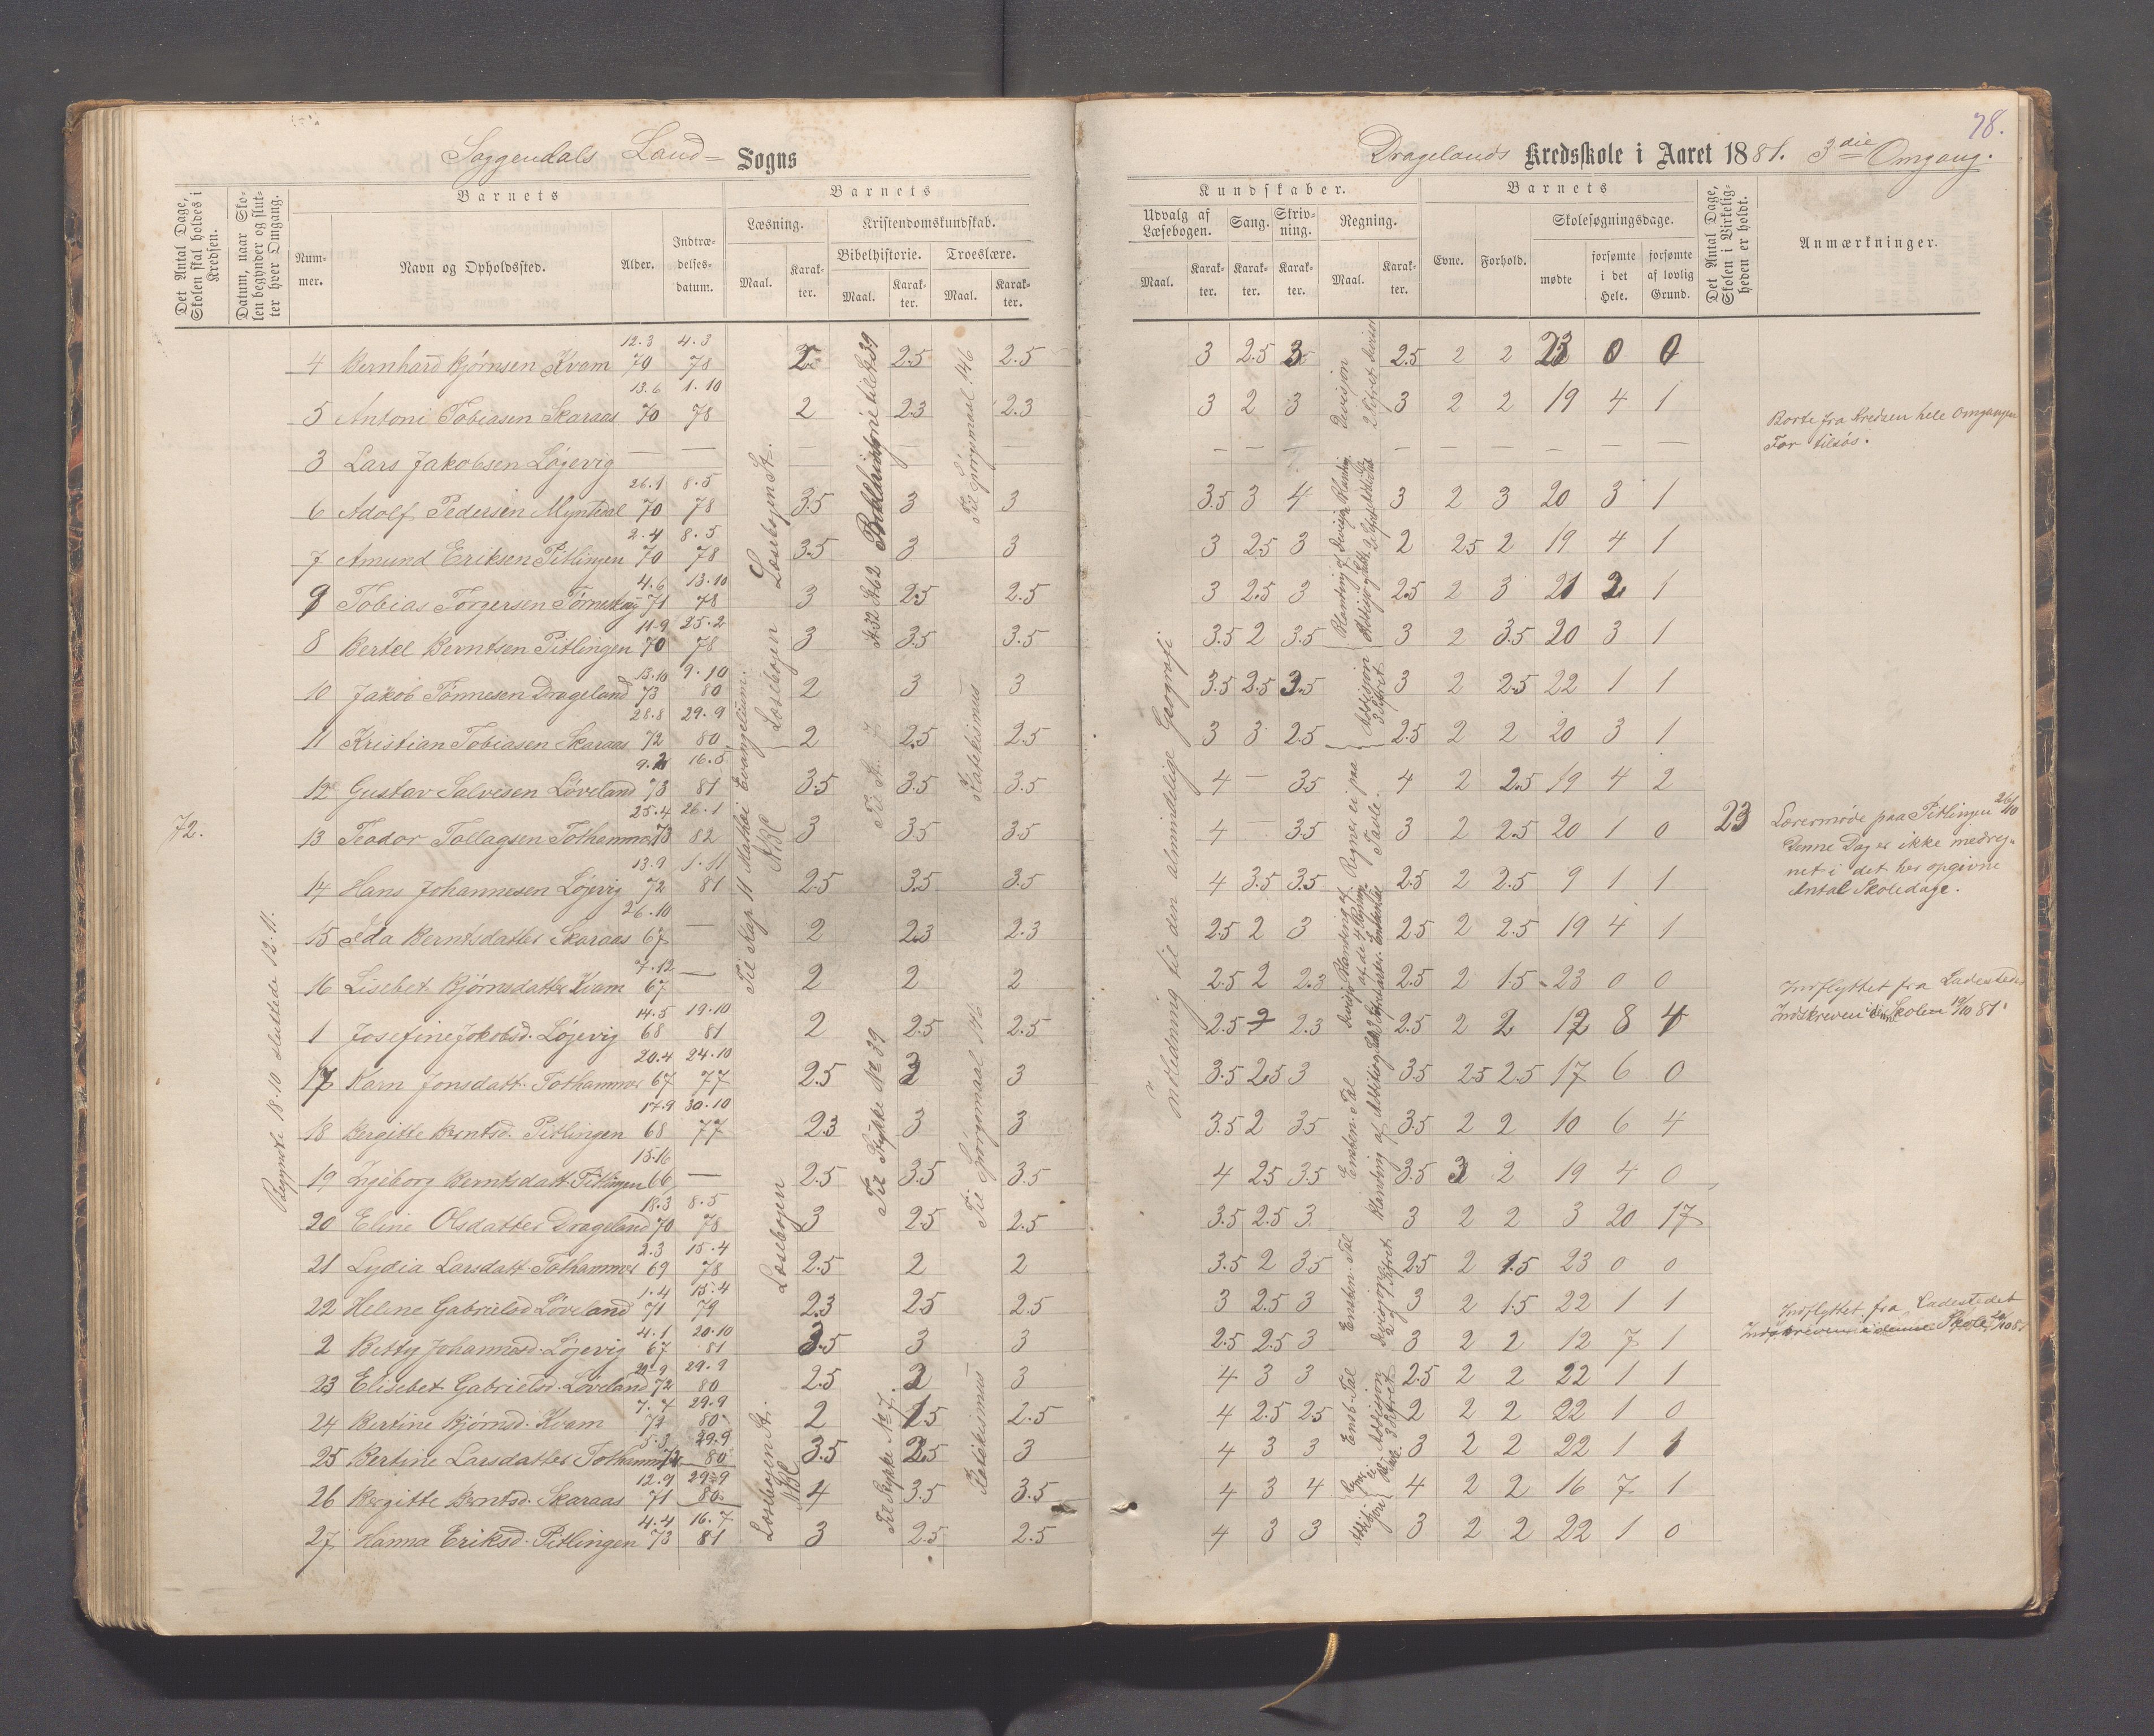 78.
Soggendals Land= Sogns
Dragelands Kredsskole i Aaret 1881. 3die Omgang.
Det Antal Dage, Skolen skal holdes i Kredsen.
Datum, naar Skolen begynder og slutter hver Omgang.
Barnets
Nummer.
Navn og Opholdssted.
Alder.
Indtrædelsesdatum.
Barnets
Læsning.
Maal.
Karakter.
Kristendomskundskab.
Bibelhistorie.
Maal.
Karakter.
Troeslære.
Maal.
Karakter.
Kundskaber.
Udvalg af Læsebogen.
Maal.
Karakter.
Sang.
Karakter.
Skrivning.
Karakter.
Regning.
Maal.
Karakter.
Barnets
Evne.
Forhold.
Skolesøgningsdage.
mødte
forsømte i det Hele.
forsømte af lovlig Grund.
Det Antal Dage, Skolen i Virkeligheden er holdt.
Anmærkninger.
4 Bernhard Bjørnsen Kvam 12.3 70 4.3 78 2 2.5 2.5 3 2.5 3 2.5 2 2 23 0 0
5 Antoni Tobiasen Skaraas 13.6 70 1.10 78 2 2.3 2.3 3 2 3 3 2 2 19 4 1
3 Lars Jakobsen Løjevig — — — — — — — — — — — — — — Borte fra Kredsen hele Omgangen
For tilsøs.
6 Adolf Pedersen Myntedal 26.1 70 8.5 78 3.5 3 3 3.5 3 4 3 2 3 20 3 1
7 Amund Eriksen Pitlingen 2.4 70 8.5 78 3.5 3 3 3 2.5 3 2 2.5 2 19 4 1
9 Tobias Torgersen Tørneskog 4.6 71 13.10 78 3 2.5 2.5 3 2.5 3 2.5 2 3 21 2 1
8 Bertel Berntsen Pitlingen 11.9 70 25.2 78 3 3.5 3.5 3.5 2 3.5 3 2 3.5 20 3 1
10 Jakob Tønnesen Drageland 13.10 73 9.10 80 2 3 3 3.5 2.5 3.5 3 2 2.5 22 1 1
11 Kristian Tobiasen Skaraas 28.8 72 29.9 80 2 2.5 2.5 3 3 2.5 2.5 2 2 20 3 1
12 Gustav Salvesen Løveland 9.2 73 16.5 81 3.5 3.5 3.5 4 — 3.5 4 2 2.5 19 4 2
72.
13 Teodor Tollagsen Tothammer 25.4 73 26.1 82 3 3.5 3.5 4 — 3.5 3 2 2.5 20 1 0 23 Lærermøde paa Pitlingen 26/10
Denne Dag er ikke medreg-
net i det her opgivne
Antal Skoledage.
14 Hans Johannesen Løjevig 13.9 72 1.11 81 2.5 3.5 3.5 4 3.5 3.5 2.5 2 2.5 9 1 1
15 Ida Berntsdatter Skaraas 26.10 67 — 2 2.3 2.3 2.5 2 3 2.5 2 2.5 19 4 1
16 Lisebet Bjørnsdatter Kvam 7.12 67 — 2 2 2 2.5 2 2.3 2.5 2 1.5 23 0 0
1 Josefine Jokobsd. Løjevig 14.5 68 19.10 81 2 2.5 2.5 2.5 2 2.3 2.5 2 2 12 8 4 Indflyttet fra Ladestedet
Indskreven i denne Skolen 19/10 81.
17 Karn Jonsdatt. Tothammer 20.4 67 24.10 77 2.5 3 3 3.5 2.5 3 3.5 2.5 2.5 17 6 0
18 Bergitte Berntsd. Pitlingen 17.9 68 30.10 77 2.3 3 3 3.5 2 3.5 3.5 2 2 10 6 4
19 Ingeborg Berntsdatt. Pitlingen 13.16 66 — 2.5 3.5 3.5 4 2.5 3.5 3.5 3 2 19 4 0
20 Eline Olsdatter Drageland 18.3 70 8.5 78 3 2.5 2.5 3.5 2.5 3 3 2 2 3 20 17
21 Lydia Larsdatt. Tothammer 2.3 69 15.4 78 2.5 2 2 3.5 2 3.5 2.5 2 1.5 23 0 0
22 Helene Gabrielsd Løveland 1.4 71 15.4 79 2.3 2.5 2.5 3 2.5 3 3 2 1.5 22 1 1
2 Betty Johannesd. Løjevig 4.1 67 20.10 81 3.5 3 3 2.5 2.5 3 3 2 2 12 7 1 Indflyttet fra Ladestedet
Indskreven i denne Skole 20/10 81
23 Elisebet Gabrielsd. Løveland 22.9 72 29.9 80 2.5 2 3 4 3 3 2.5 2 2 22 1 1
24 Bertine Bjørnsd. Kvam 7.7 73 29.9 80 2 1.5 2.5 4 2.5 2.5 2 2 2 22 1 0
25 Bertine Larsdatter Tothammer 5.3 72 29.9 80 3.5 2.5 3 4 3 3 3 2 2 22 1 1
26 Bergitte Berntsd. Skaraas 12.9 71 29.9 80 4 3.5 3.5 4 3 4 4 2 2 16 7 1
27 Hanna Eriksd. Pitlingen 4.4 73 16.7 81 3 2.5 2.5 4 3 3 3 2 2 22 1 0
Begyndte 18.10 sluttede 12.11.
Til Kap 11 Mathæi Evangelium.
ABC
Læsebogen
Læsebogen St.
Til Spørgmaal 146
Katekismus
Til Stykke No 39
Til Spørgmaal 146
Læsebogen
Læsebogen St.
ABC
Til Stykke No 7
Katekismus
Indledning til den almindelige Geografi